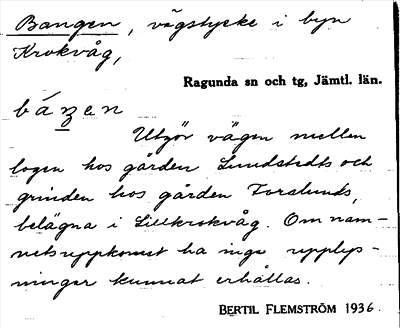 Bangen, vägstycke i byn
Krokvåg,
Ragunda sn och tg, Jämtl. län.
báŋen
Utgör vägen mellan
logen hos gården Lundstedts och
grinden hos gården Forslunds,
belägna i Lillkrokvåg. Om nam-
nets uppkomst ha inga upplys-
ningar kunnat erhållas.
BERTIL FLEMSTRÖM 1936.